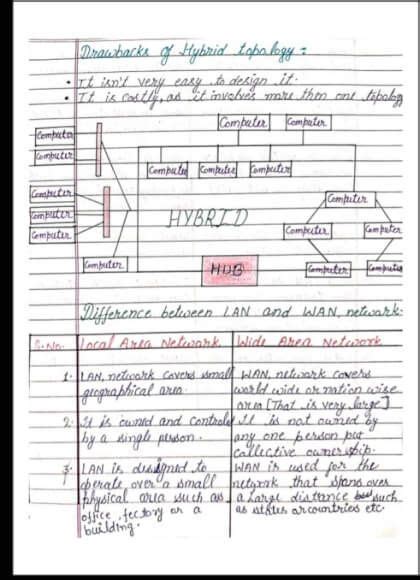 Drawbacks of Hybrid topology :
• It isn't very easy to design it.
• It is costly, as it involves more then one topology
Computer Computer
Computer
Computer
Computer Computer Computer
Computer
Computer
Computer
Computer
HYBRID
Computer Computer
Computer
HUB
Computer Computer
Difference between LAN and WAN, network:
S.No. Local Area Network Wide Area Network
1. LAN, network covers small
geographical area.
WAN, network covers
world wide or nation wise
area [That is very large]
2. It is owned and controls
by a single person.
It is not owned by
any one person put
collective ownership.
3. LAN is designed to
operate over a small
physical area such as
office, fectory or a
building.
WAN is used for the
network that spans over
a large distance such
as states or countries etc.